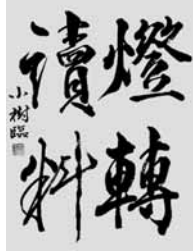 燈轉
讀料
小樹臨